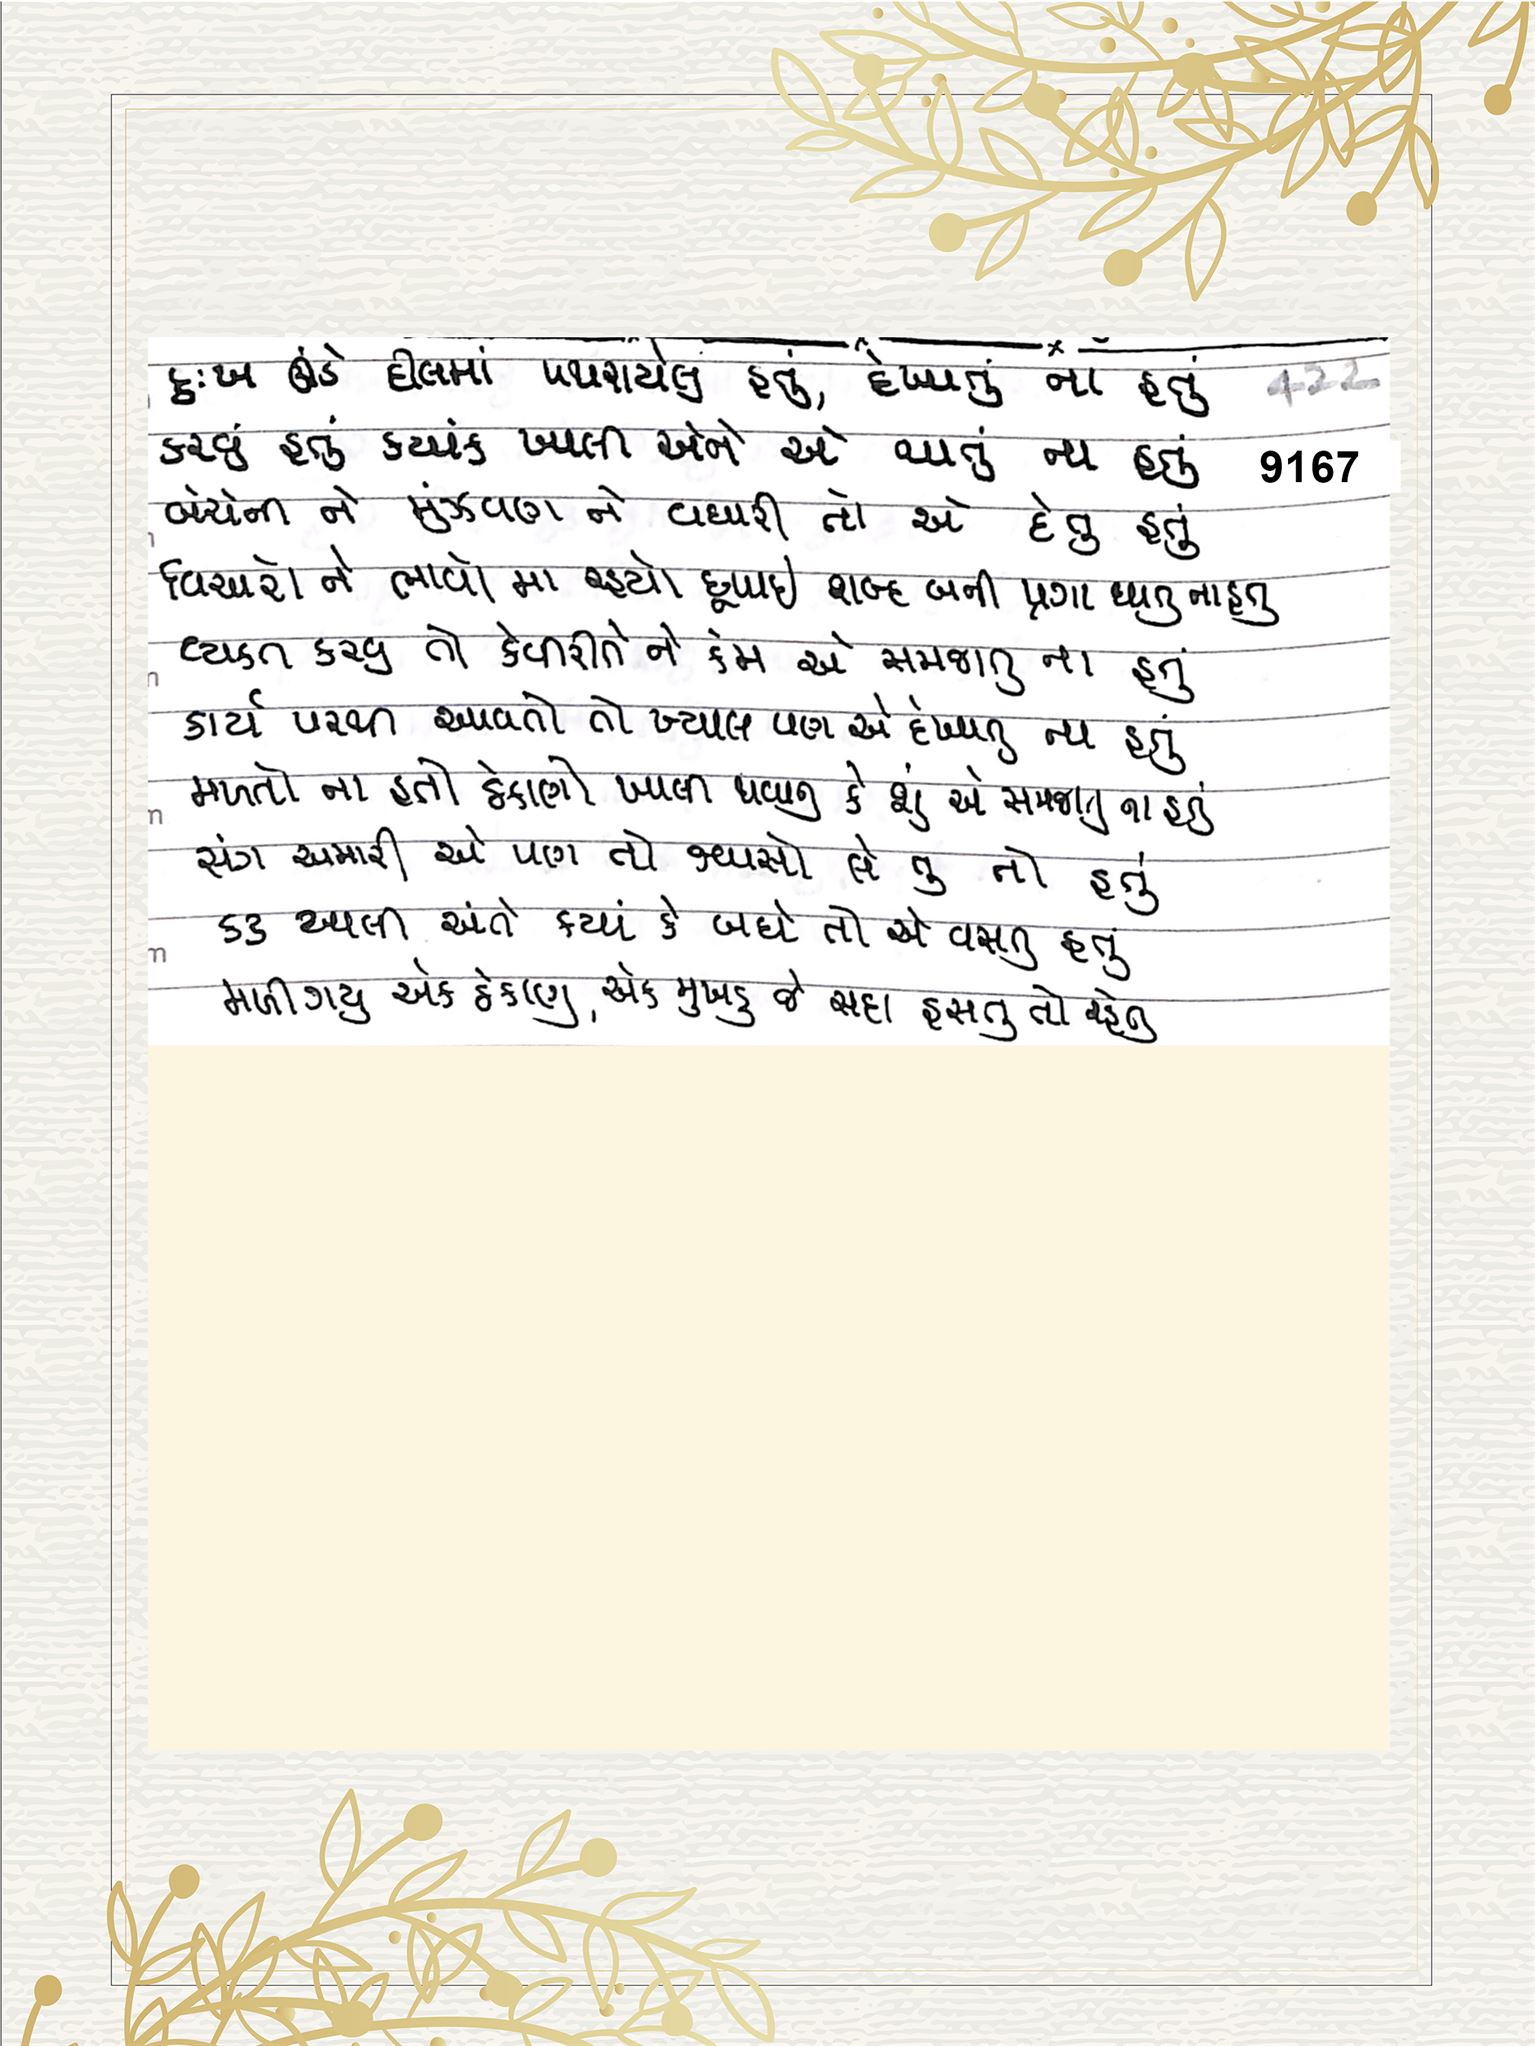 દુઃખ ઊંડે દીલમાં પથરાયેલું હતું, દેખાતું ના હતું 422
કરવું હતું ક્યાંક ખાલી એને એ થાતું ના હતું 9167
બેચેની ને મુંઝવણ ને વધારી તો એ દેતુ હતું
વિચારો ને ભાવો મા રહ્યો છૂપાઈ શબ્દ બની પ્રગટ થાતુ ના હતુ
વ્યક્ત કરવુ તો કેવીરીતે ને કેમ એ સમજાતુ ના હતું
કાર્ય પરથી આવતો તો ખ્યાલ પણ એ દેખાતુ ના હતું
મળતો ના હતો ઠેકાણો ખાલી થવાનુ કે શું એ સમજાતુ ના હતું
સંગ અમારી એ પણ તો શ્વાસો લે તુ તો હતું
ખાલી અંતે ક્યાં કે બધે તો એ વસતુ હતું
મળી ગયુ એક ઠેકાણુ, એક મુખડુ જે સદા હસતુ તો રહેતુ